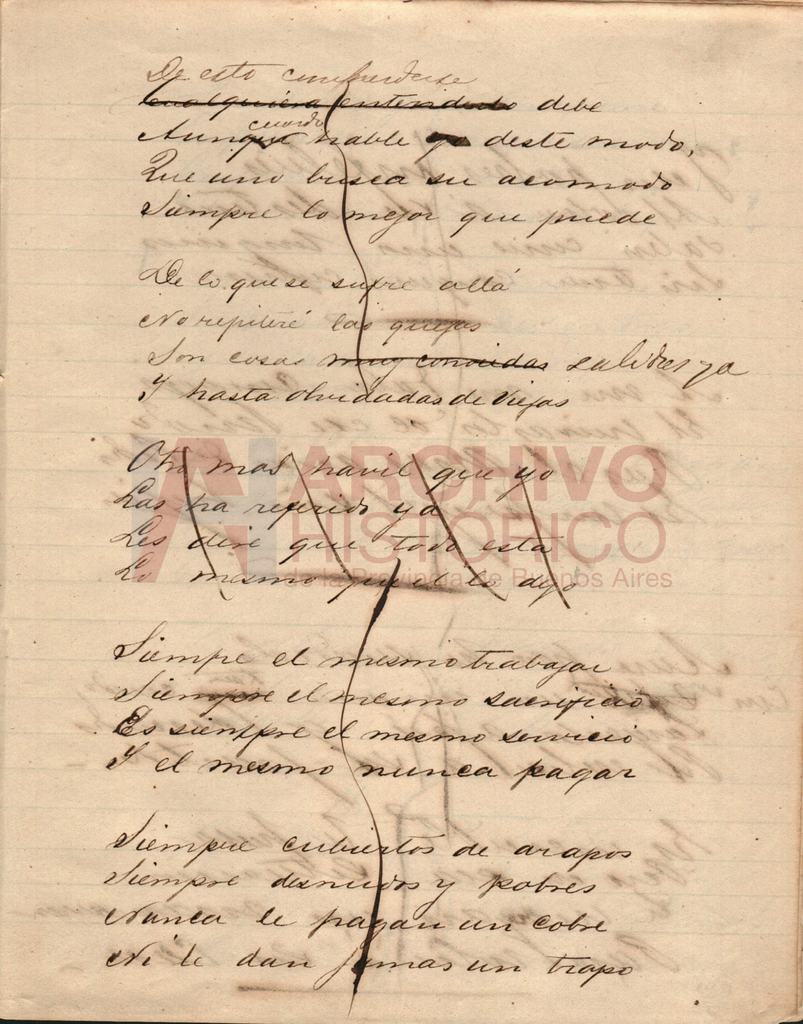 De esto cumbendcise
cualquiera entenderlo debe
cuando
Aunque hable yo deste modo,
Que uno busca su acomodo
Siempre lo mejor que puede
De lo que se sufre allá
No repiteré las quejas
Son cosas muy conocidas sabidas ya
Y hasta olvidadas de viejas
Otro mas havil que yo
Las ha referido ya
Les diré que todo está
Lo mesmo que el lo dejó
Siempe el mesmo trabajar
Siempre el mesmo sacrificio
Es siempre el mesmo servicio
Y el mesmo nunca pagar
Siempre cubiertos de arapos
Siempre desnudos y pobres
Nunca le pagan un cobre
Ni le dan jamas un trapo
ARCHIVO
HISTÓRICO
de la Provincia de Buenos Aires